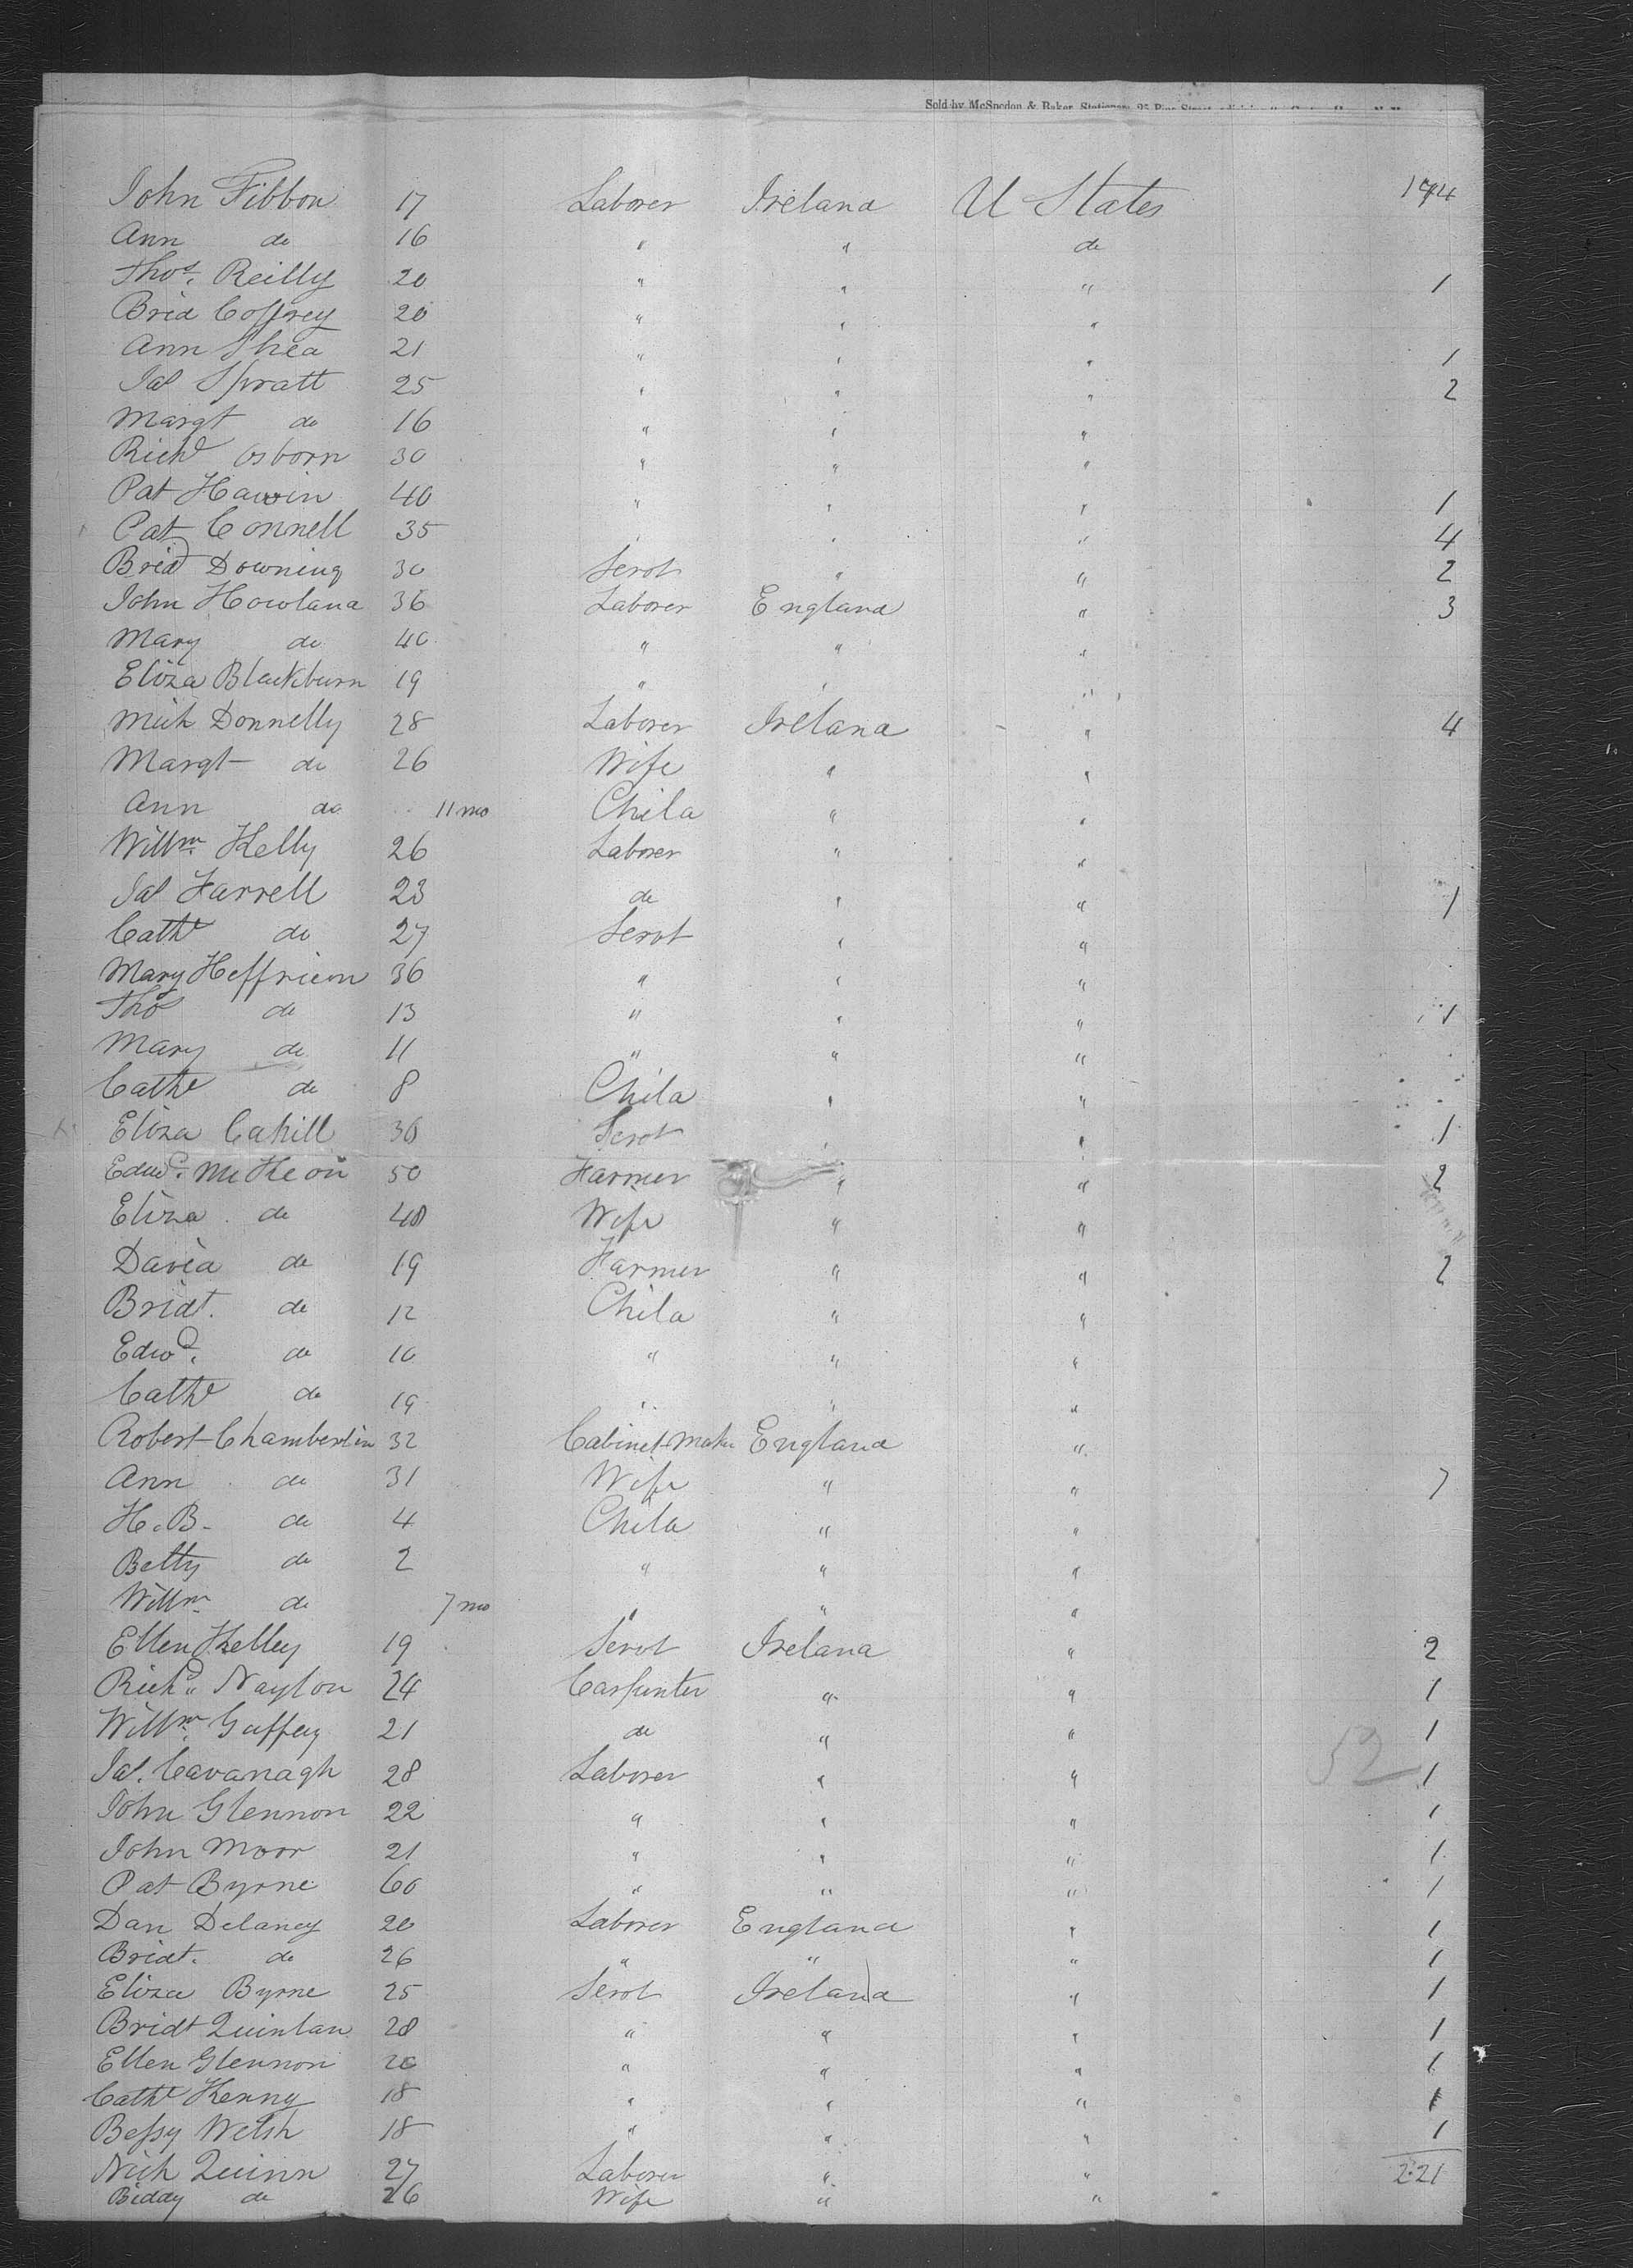 Sold by McSpedon & Baker, Stationers, 25 Pine Street
John Fibbon 17 Laborer Ireland U States 174
Ann do 16 " " do
Thos. Reilly 20 " " " 1
Brid Coffrey 20 " " "
Ann Shea 21 " " " 1
Jas Spratt 25 " " " 2
Margt do 16 " " "
Richd Osborn 30 " " "
Pat Hawin 40 " " " 1
Pat Connell 35 " " " 4
Brid Downing 30 Servt " " 2
John Howland 36 Laborer England " 3
Mary do 40 " " "
Eliza Blackburn 19 " " "
Mich Donnelly 28 Laborer Ireland " 4
Margt do 26 Wife " "
Ann do 11 mo Child " "
Willm Kelly 26 Laborer " "
Jas Farrell 23 do " " 1
Cathe do 27 Servt " "
Mary Heffrien 36 " " "
Thos do 13 " " " 1
Mary do 11 " " "
Cathe do 8 Child " "
Eliza Cahill 30 Servt " " 1
Edwd. McKeon 50 Farmer " " 2
Eliza do 40 Wife " "
David do 19 Farmer " " 2
Bridt. do 12 Child " "
Edwd. do 10 " " "
Cathe do 19 " " "
Robert Chamberlin 32 Cabinet Maker England "
Ann do 31 Wife " " 7
H. B. do 4 Child " "
Betty do 2 " " "
Willm do 7 mo " " "
Ellen Kelley 19 Servt Ireland " 2
Richd. Naylon 24 Carpenter " " 1
Willm. Gaffey 21 do " " 1
Jas. Cavanagh 28 Laborer " " 52 1
John Glennon 22 " " " 1
John Moor 21 " " " 1
Pat Byrne 60 " " " 1
Dan Delaney 20 Laborer England " 1
Bridt. do 26 " " " 1
Eliza Byrne 25 Servt Ireland " 1
Bridt Quinlan 28 " " " 1
Ellen Glennon 20 " " " 1
Cathe Kenny 18 " " " 1
Bessy Welsh 18 " " " 1
Nich Quinn 27 Laborer " " 221
Biddy do 26 Wife " "